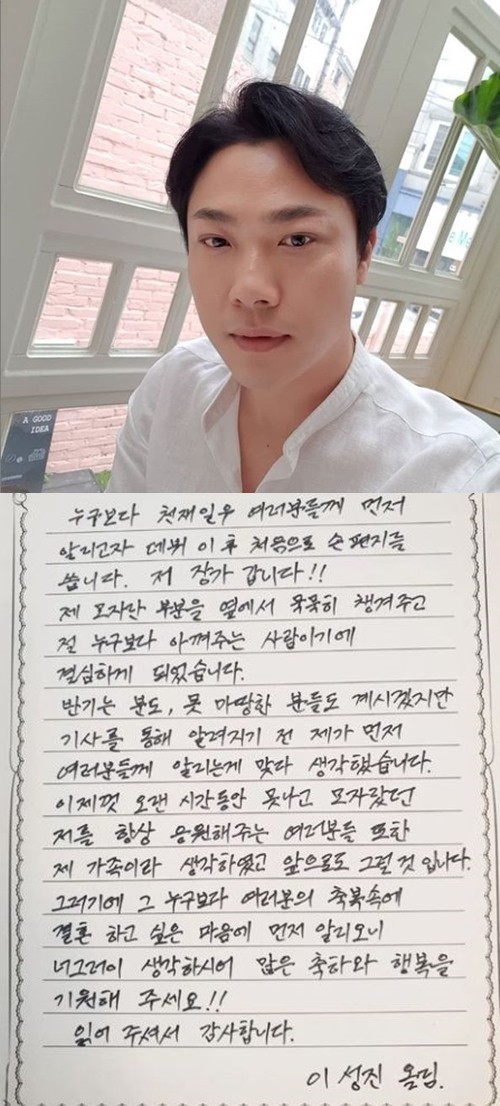 A GOOD
IDEA
누구보다 천재일우 여러분들께 먼저
알리고자 데뷔 이후 처음으로 손편지를
씁니다. 저 장가 갑니다!!
제 모자란 부분을 옆에서 묵묵히 챙겨주고
절 누구보다 아껴주는 사람이기에
결심하게 되었습니다.
반기는 분도, 못 마땅한 분들도 계시겠지만
기사를 통해 알려지기 전 제가 먼저
여러분들께 알리는게 맞다 생각했습니다.
이제껏 오랜 시간동안 못나고 모자랐던
저를 항상 응원해주는 여러분들 또한
제 가족이라 생각하였고 앞으로도 그럴것 입니다.
그러기에 그 누구보다 여러분의 축복속에
결혼 하고 싶은 마음에 먼저 알리오니
너그러이 생각하시어 많은 축하와 행복을
기원해 주세요!!
읽어 주셔서 감사합니다.
이성진 올림.